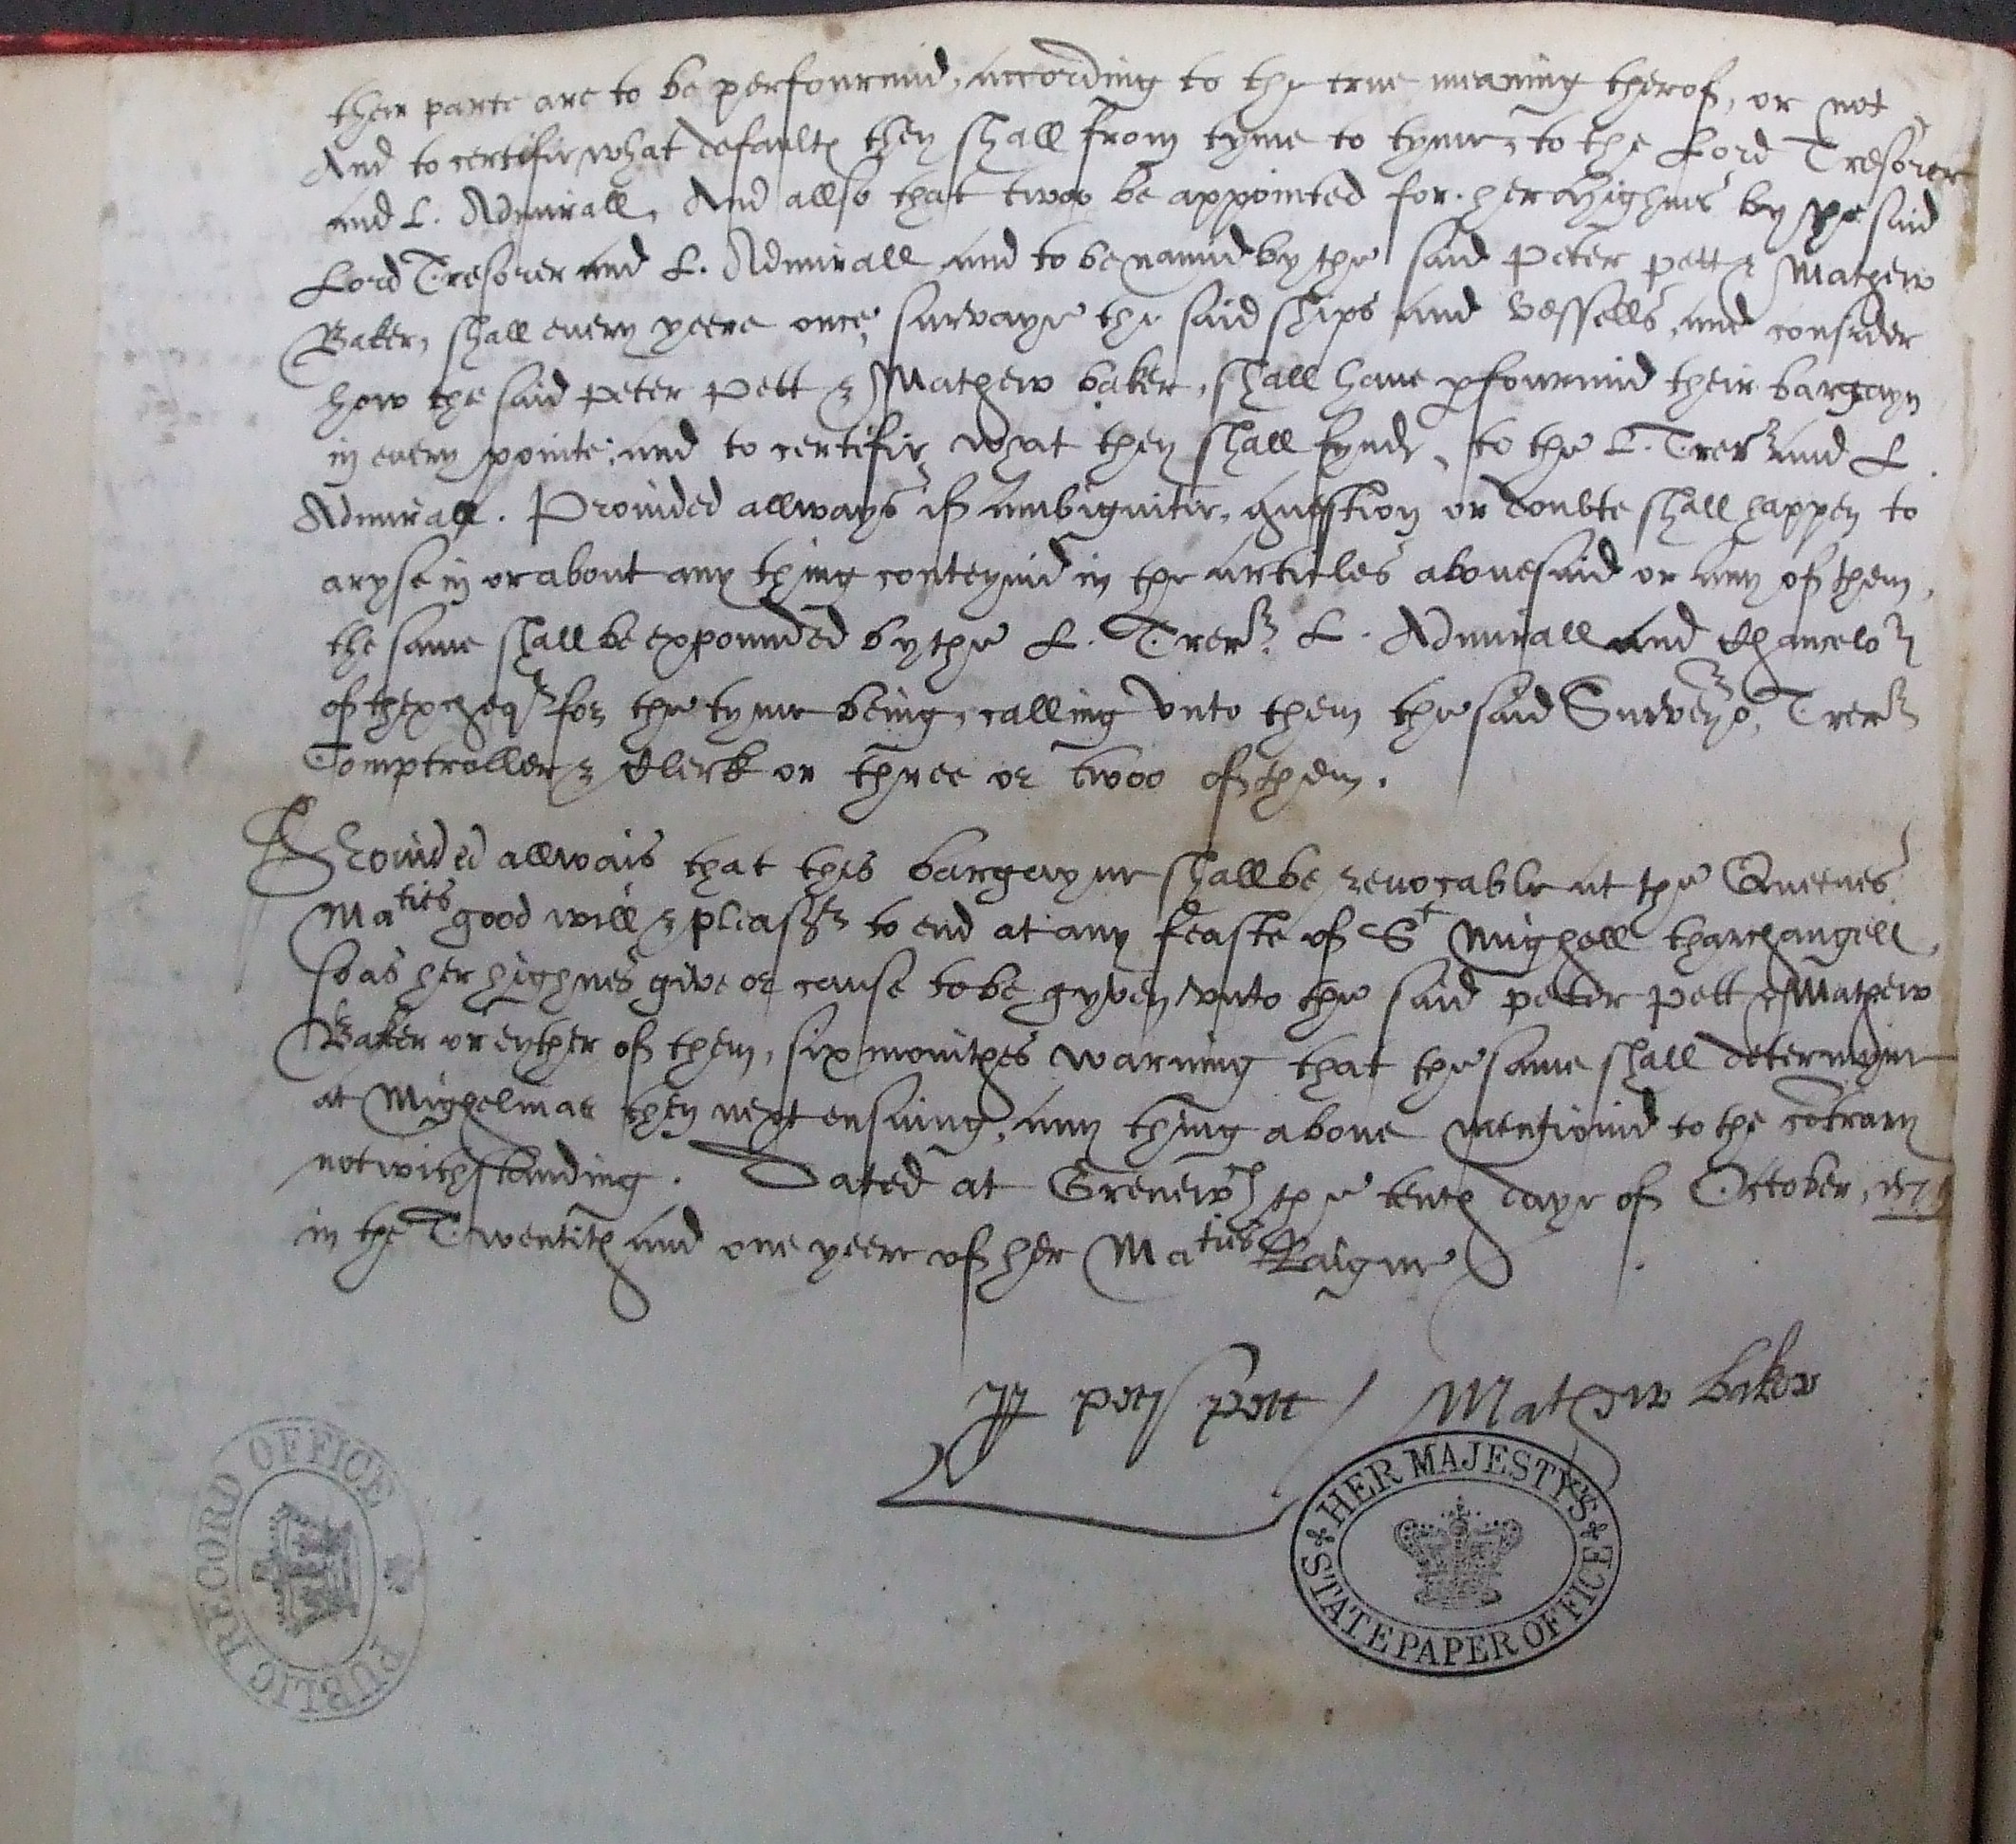 their parte are to be perfourmid, according to the true meaning therof, or not
And to certifie what defaulte they shall from tyme to tyme, to the Lord Tresorer
and L. Admirall, And allso that twoo be appointed for her Highnes by the said
Lord Tresorer and L. Admirall and to be namid by the said Peter Pett & Mathew
Baker, shall euery yeere once, survaye the said ships and vessells, and consider
how the said Peter Pett & Mathew baker, shall haue pfourmid their bargayn
in euery pointe, and to certifie what they shall fynde, to the L. Trer and L.
Admirall. Prouided allways if ambiguitie, question or doubte shall happen to
aryse in or about any thing conteynid in the articles abouesaid or any of them,
the same shall be expounded by the L. Trer. L. Admirall and Chancelor
of thexcheqr for the tyme being, calling vnto them the said Surveyor, Trer
Comptroller & Clerk or three or twoo of them.
Prouided allwais that this bargayne shall be reuocable at the Queenes
Maties good will & pleasr to end at any feaste of St Mighell tharchangell,
so as her highnes give or cause to be gyven vnto the said Peter Pett & Mathew
Baker or eyther of them, six monthes warning that the same shall determyne
at Mighelmas then next ensuing, any thing aboue mentionid to the cotrary
notwithstanding. Dated at Grenewch the tenth daye of October, 1579
in the Twentith and one yeere of her Maties Raigne
PP peter pett / Mathew baker
HER MAJESTY'S
STATE PAPER OFFICE
PUBLIC RECORD OFFICE